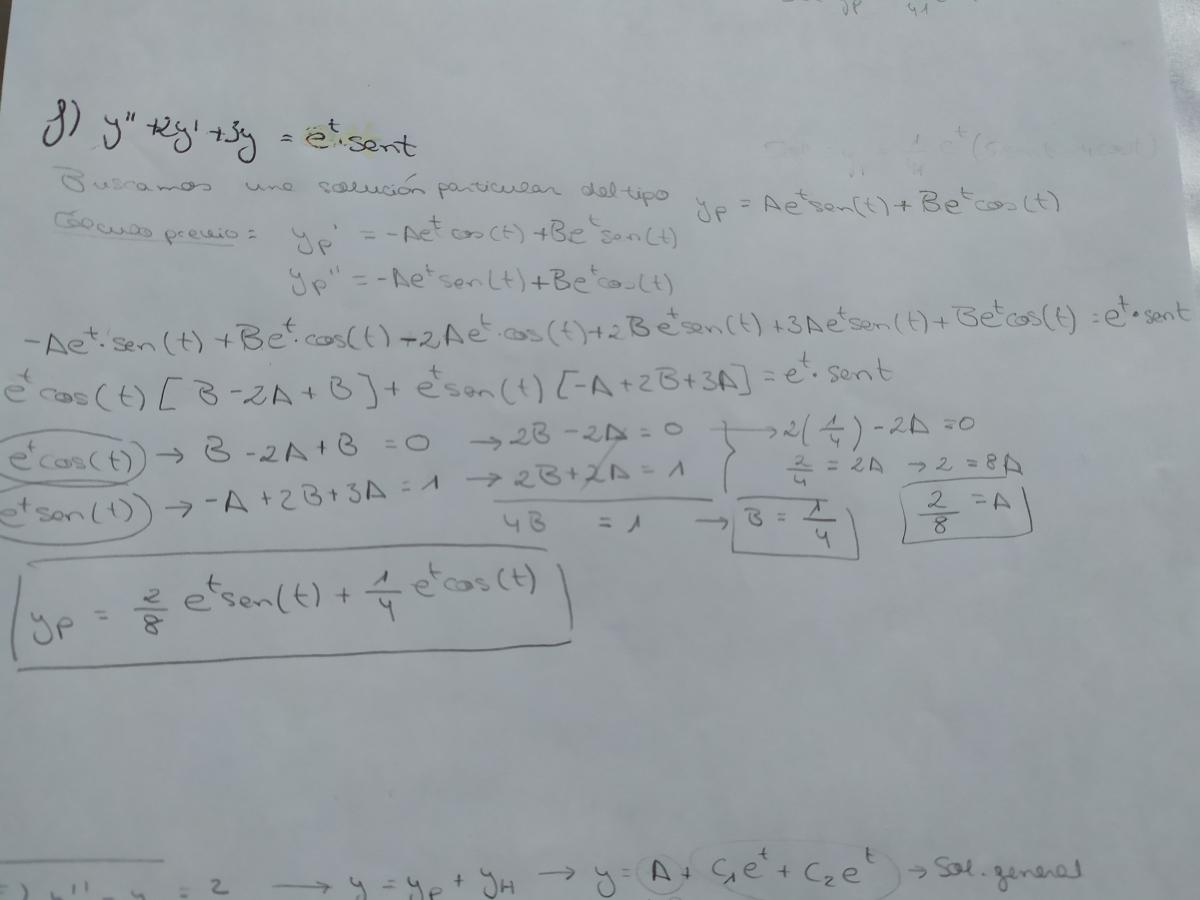 yp 41
f) y'' + 2y' + 3y = e^t · sent
Buscamos una solución particular del tipo yp = Ae^t sen(t) + Be^t cos(t)
Cálculo previo: yp' = -Ae^t cos(t) + Be^t sen(t)
yp'' = -Ae^t sen(t) + Be^t cos(t)
-Ae^t · sen(t) + Be^t · cos(t) - 2Ae^t · cos(t) + 2Be^t sen(t) + 3Ae^t sen(t) + Be^t cos(t) = e^t · sent
e^t cos(t) [B - 2A + B] + e^t sen(t) [-A + 2B + 3A] = e^t · sent
e^t cos(t) → B - 2A + B = 0 → 2B - 2A = 0 → 2(1/4) - 2A = 0
e^t sen(t) → -A + 2B + 3A = 1 → 2B + 2A = 1 2/4 = 2A → 2 = 8A
4B = 1 → B = 1/4 2/8 = A
yp = 2/8 e^t sen(t) + 1/4 e^t cos(t)
y'' - y = 2 → y = yp + yH → y = A + C1e^t + C2e^t → Sol. general